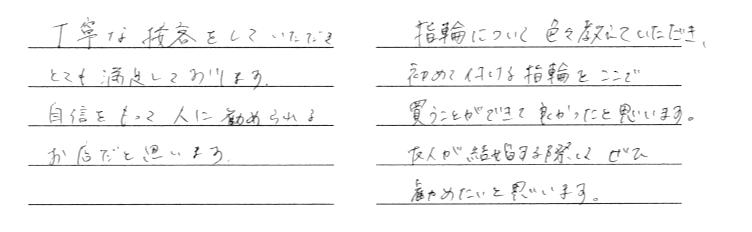 丁寧な接客をしていただき
とても満足しております。
自信をもって人に勧められる
お店だと思います。
指輪について色々教えていただき、
初めて付ける指輪をここで
買うことができて良かったと思います。
友人が結婚する際には ぜひ
勧めたいと思います。